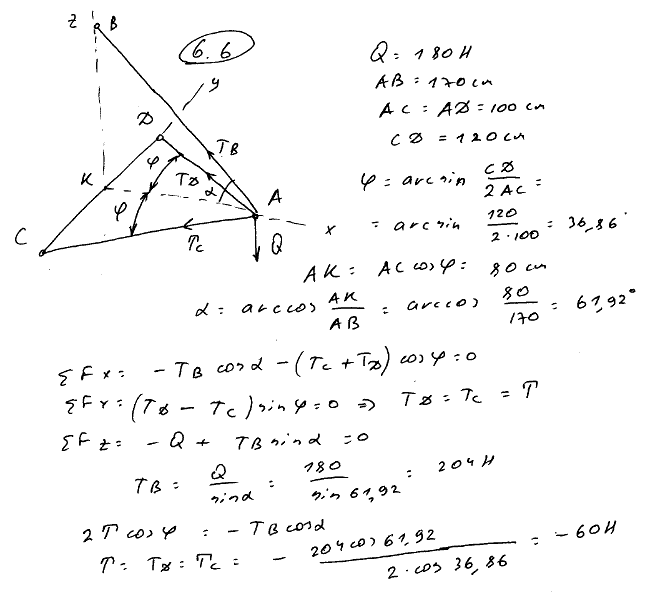 z B
6.6
y
D
T_B
φ
T_D
α
K
φ
A
x
C
T_C
Q
Q = 180 Н
AB = 170 см
AC = AD = 100 см
CD = 120 см
φ = arcsin CD / 2AC =
= arcsin 120 / 2·100 = 36,86°
AK = AC cos φ = 80 см
α = arccos AK / AB = arccos 80 / 170 = 61,92°
ΣFx = - T_B cos α - (T_C + T_D) cos φ = 0
ΣFY = (T_D - T_C) sin φ = 0 ⇒ T_D = T_C = T
ΣFz = - Q + T_B sin α = 0
T_B = Q / sin α = 180 / sin 61,92 = 204 Н
2T cos φ = - T_B cos α
T = T_D = T_C = - 204 cos 61,92 / 2·cos 36,86 = - 60 Н